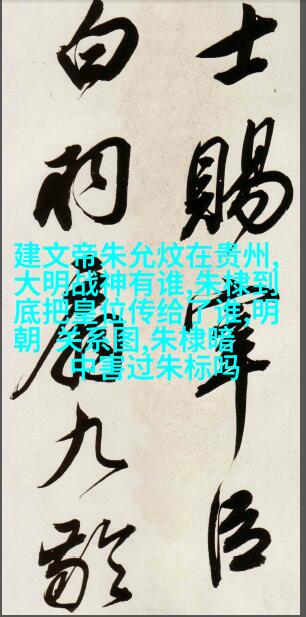 士賜宰臣
白羽扇九齡
建文帝朱允炆在贵州,
大明战神有谁,朱棣到
底把皇位传给了谁,明
朝 关系图,朱棣暗
中害过朱标吗